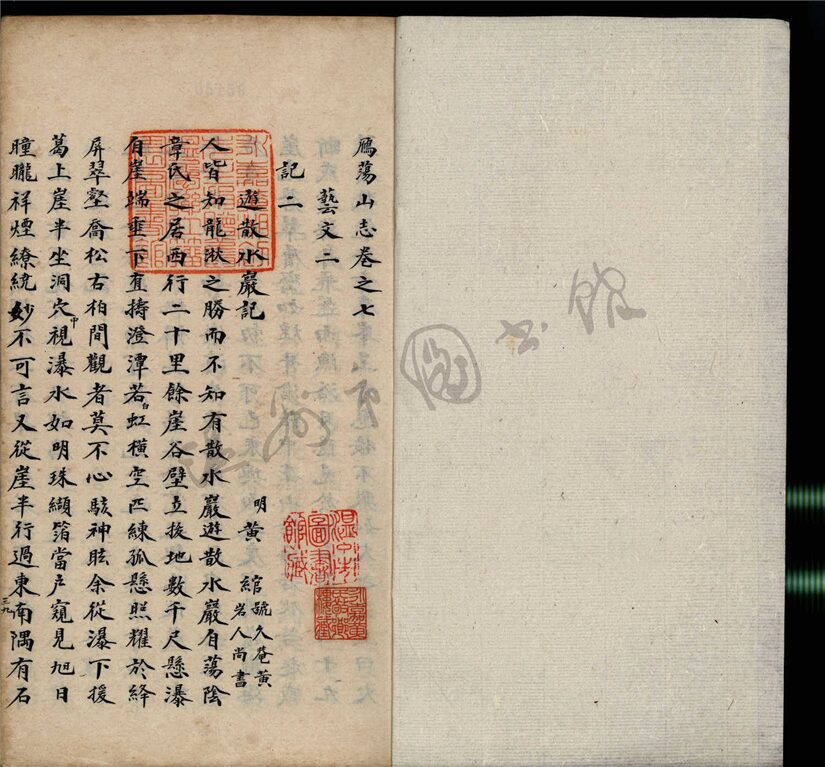 雁蕩山志卷之七
藝文二
記二
遊散水巖記
明黃綰號久庵黃岩人尚書
人皆知龍湫之勝而不知有散水巖遊散水巖自蕩陰
章氏之居西行二十里餘崖谷壁立拔地數千尺懸瀑
自崖端垂下直擣澄潭若白虹橫空匹練孤懸照耀於絳
屏翠壑喬松古柏間觀者莫不心駭神眩余從瀑下援
葛上崖半坐洞穴中視瀑水如明珠纈箔當戶窺見旭日
曈曨祥煙繚繞妙不可言又從崖半行過東南隅有石
溫州市圖書館藏
圖書館